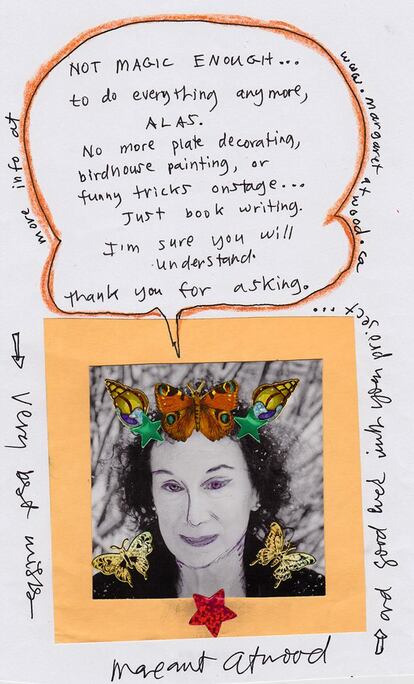 NOT MAGIC ENOUGH...
to do everything anymore,
ALAS.
No more plate decorating,
birdhouse painting, or
funny tricks onstage...
Just book writing.
I'm sure you will
understand.
Thank you for asking.
more info at
www.margaretatwood.ca
Very best wishes
and good
Margaret Atwood